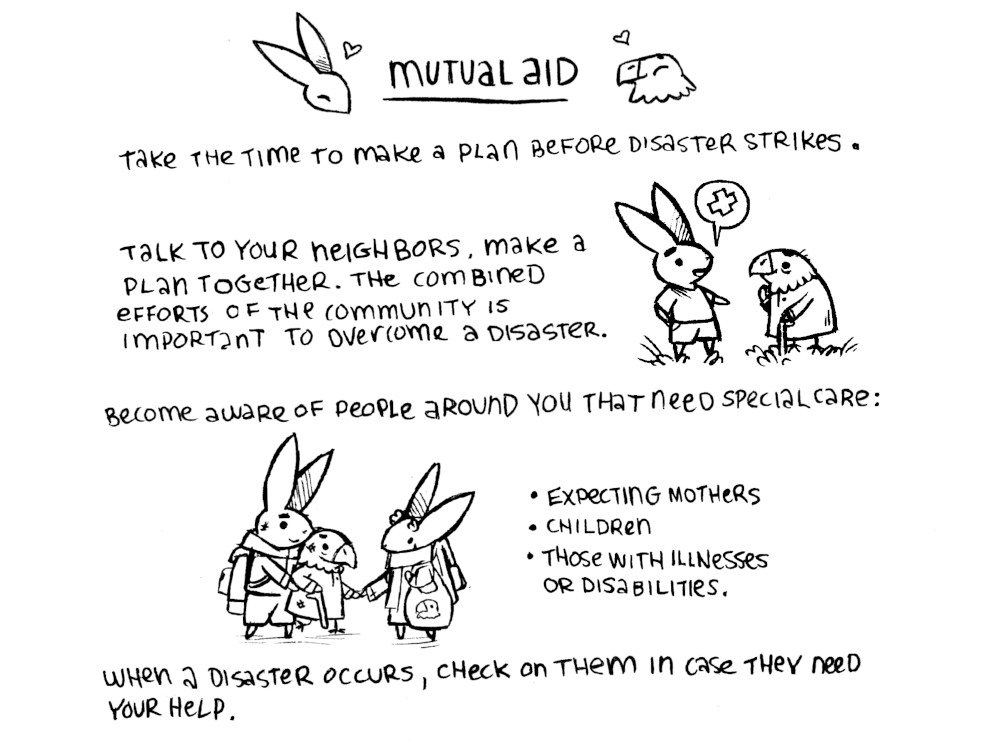 MUTUAL AID
TAKE THE TIME TO MAKE A PLAN BEFORE DISASTER STRIKES.
TALK TO YOUR NEIGHBORS, MAKE A
PLAN TOGETHER. THE COMBINED
EFFORTS OF THE COMMUNITY IS
IMPORTANT TO OVERCOME A DISASTER.
BECOME AWARE OF PEOPLE AROUND YOU THAT NEED SPECIAL CARE:
• EXPECTING MOTHERS
• CHILDREN
• THOSE WITH ILLNESSES
OR DISABILITIES.
WHEN A DISASTER OCCURS, CHECK ON THEM IN CASE THEY NEED
YOUR HELP.